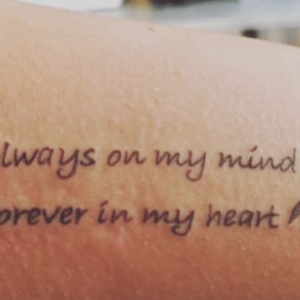 lways on my mind
orever in my heart